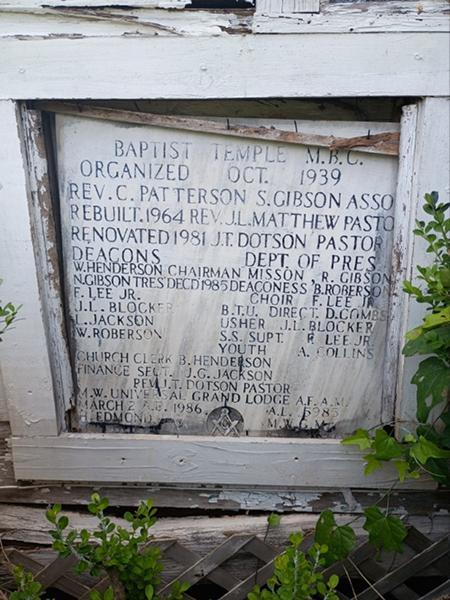 BAPTIST TEMPLE M.B.C.
ORGANIZED OCT. 1939
REV. C. PATTERSON S. GIBSON ASSO
REBUILT. 1964 REV. J.L. MATTHEW PASTO
RENOVATED 1981 J.T. DOTSON PASTOR
DEACONS DEPT OF PRES
W. HENDERSON CHAIRMAN MISSON R. GIBSON
N. GIBSON TRES DEC'D 1985 DEACONESS B. ROBERSO
F. LEE JR. CHOIR F. LEE JR
J.L. BLOCKER B.T.U. DIRECT. D. COMBS
L. JACKSON USHER J.L. BLOCKER
W. ROBERSON S.S. SUPT. F. LEE JR.
YOUTH A. COLLINS
CHURCH CLERK B. HENDERSON
FINANCE SECT. J.G. JACKSON
REV. J.T. DOTSON PASTOR
M.W. UNIVERSAL GRAND LODGE A.F.A.M.
MARCH 2 1986, A.L. 5985
EDMOND M.W.G.M.